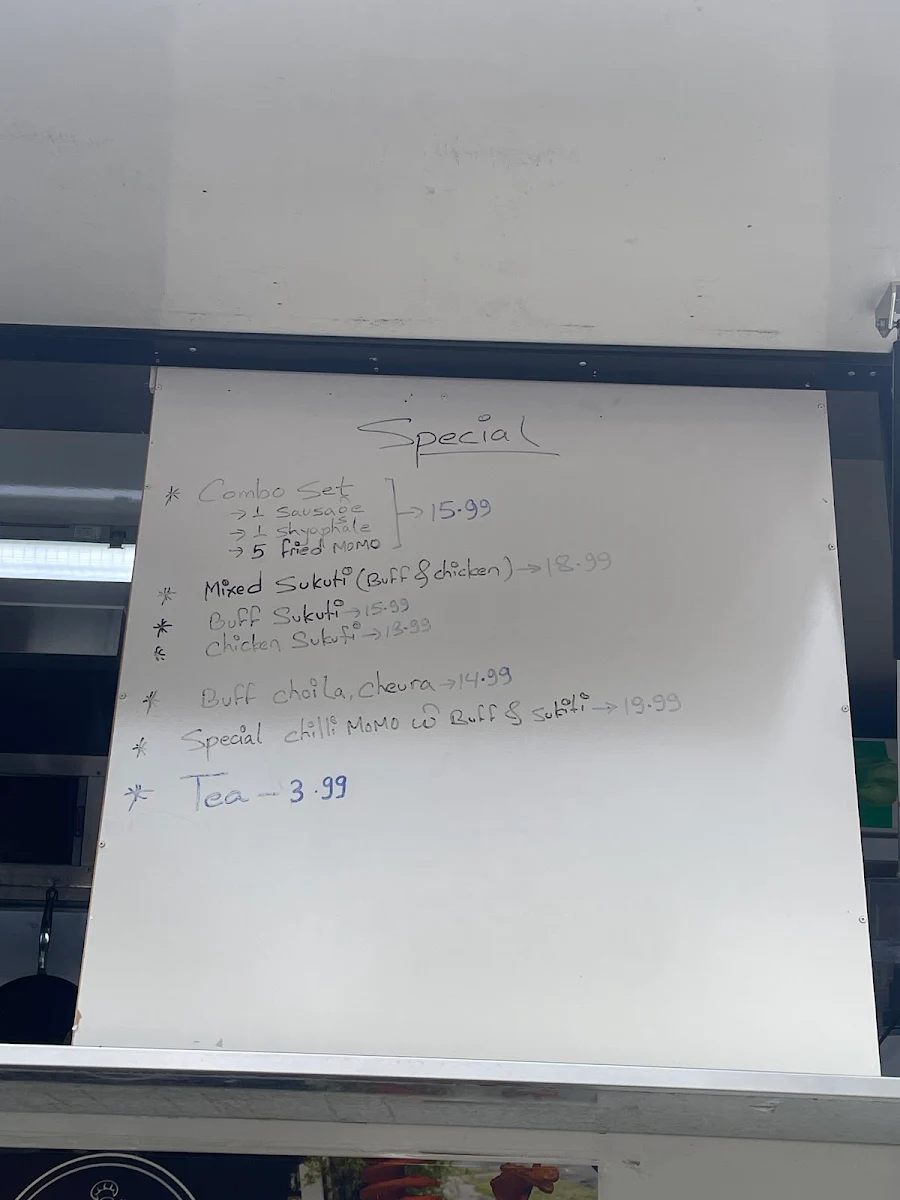 Special
* Combo Set
→ 1 Sausage
→ 1 Shyaphale
→ 5 fried MOMO
→ 15.99
* Mixed Sukuti (Buff & chicken) → 18.99
* Buff Sukuti → 15.99
* Chicken Sukuti → 13.99
* Buff choila, Cheura → 14.99
* Special chilli MOMO w Buff & Sukiti → 19.99
* Tea - 3.99